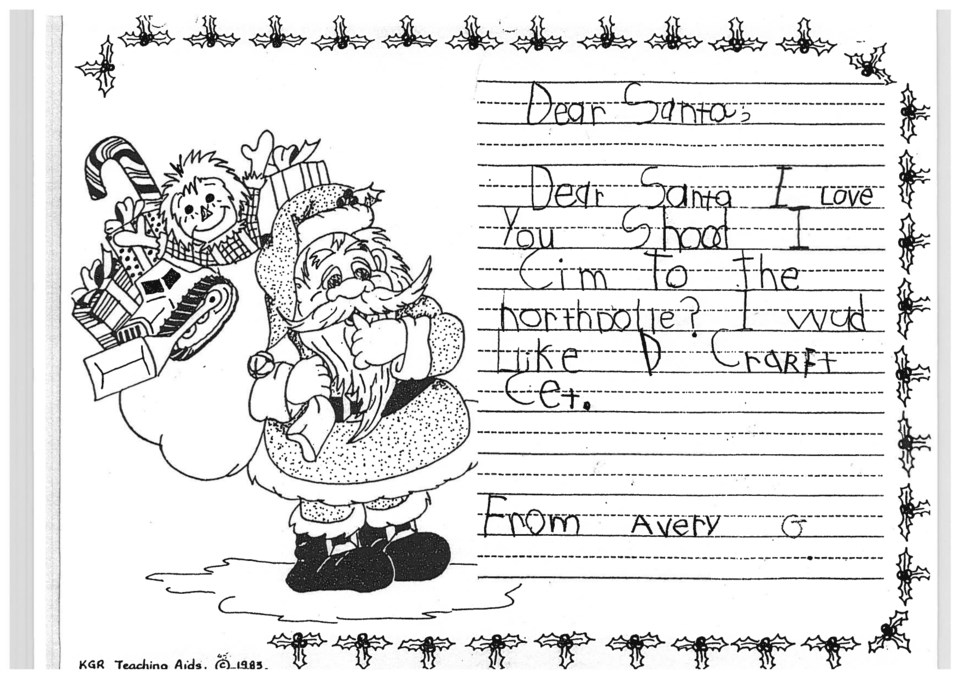 Dear Santa;
Dear Santa I Love
You Shood I
Cim To The
northpolle? I wud
Like D CrarFt
Cet.
From Avery G
KGR Teaching Aids. © 1985.